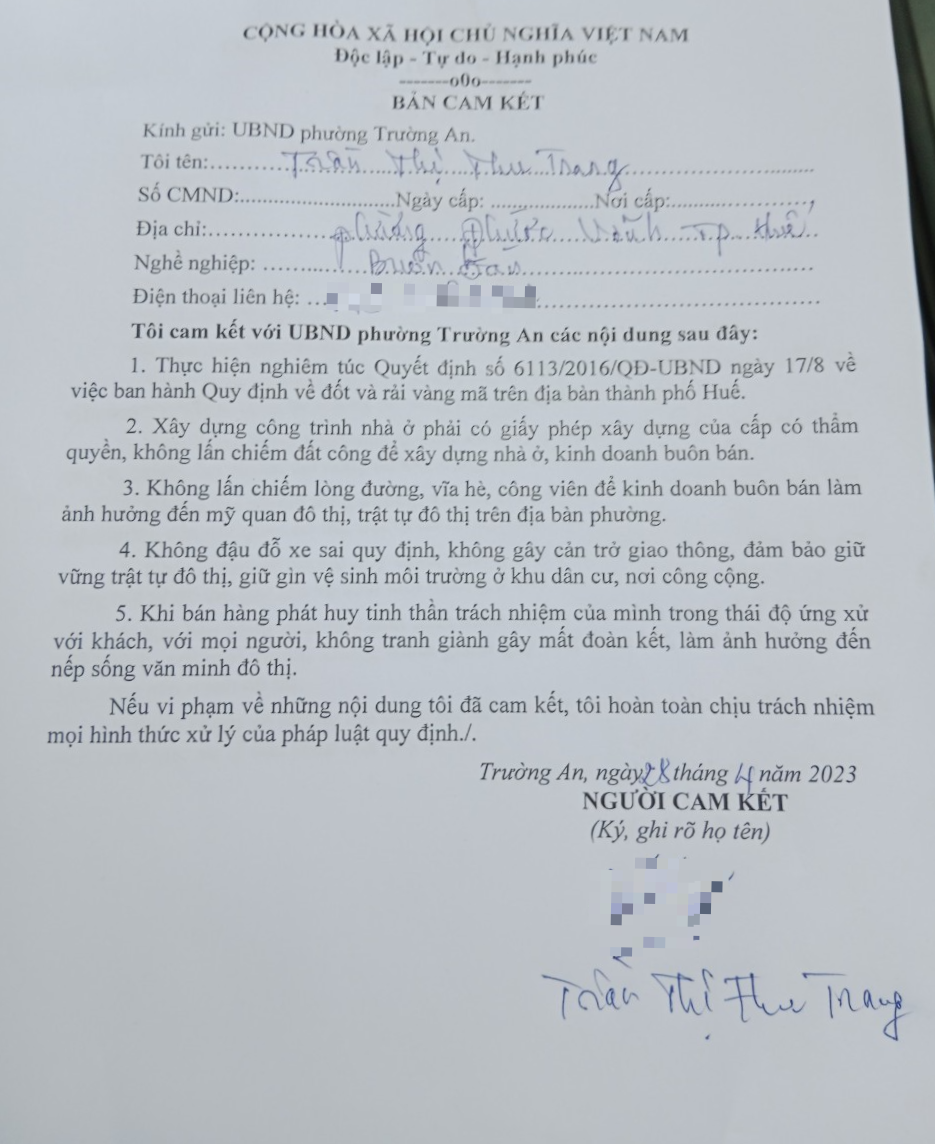 CỘNG HÒA XÃ HỘI CHỦ NGHĨA VIỆT NAM
Độc lập - Tự do - Hạnh phúc
-------o0o-------
BẢN CAM KẾT
Kính gửi: UBND phường Trường An.
Tôi tên:..........Trần Thị Thu Trang..........
Số CMND:..........Ngày cấp: ..........Nơi cấp:..........,
Địa chỉ:..........phường Phước Vĩnh TP Huế
Nghề nghiệp: ..........Buôn Bán..........
Điện thoại liên hệ: ..........
Tôi cam kết với UBND phường Trường An các nội dung sau đây:
1. Thực hiện nghiêm túc Quyết định số 6113/2016/QĐ-UBND ngày 17/8 về
việc ban hành Quy định về đốt và rải vàng mã trên địa bàn thành phố Huế.
2. Xây dựng công trình nhà ở phải có giấy phép xây dựng của cấp có thẩm
quyền, không lấn chiếm đất công để xây dựng nhà ở, kinh doanh buôn bán.
3. Không lấn chiếm lòng đường, vĩa hè, công viên để kinh doanh buôn bán làm
ảnh hưởng đến mỹ quan đô thị, trật tự đô thị trên địa bàn phường.
4. Không đậu đỗ xe sai quy định, không gây cản trở giao thông, đảm bảo giữ
vững trật tự đô thị, giữ gìn vệ sinh môi trường ở khu dân cư, nơi công cộng.
5. Khi bán hàng phát huy tinh thần trách nhiệm của mình trong thái độ ứng xử
với khách, với mọi người, không tranh giành gây mất đoàn kết, làm ảnh hưởng đến
nếp sống văn minh đô thị.
Nếu vi phạm về những nội dung tôi đã cam kết, tôi hoàn toàn chịu trách nhiệm
mọi hình thức xử lý của pháp luật quy định./.
Trường An, ngày 28 tháng 4 năm 2023
NGƯỜI CAM KẾT
(Ký, ghi rõ họ tên)
Trần Thị Thu Trang